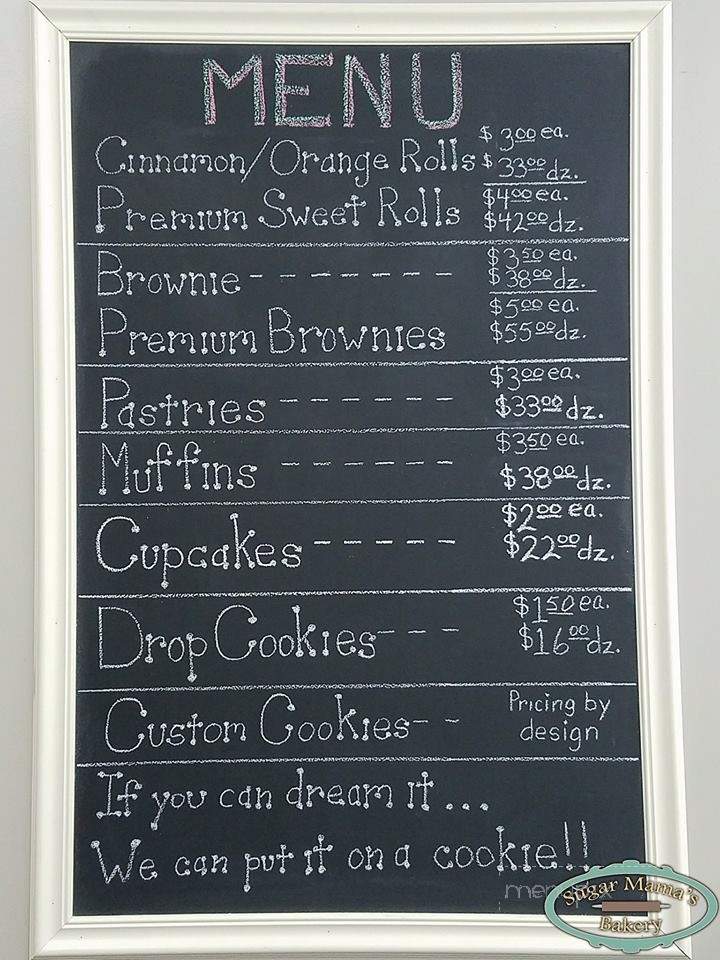 MENU
$3.00 ea.
Cinnamon/Orange Rolls $33.00 dz.
$4.00 ea.
Premium Sweet Rolls $42.00 dz.
$3.50 ea.
Brownie - - - - - - - $38.00 dz.
$5.00 ea.
Premium Brownies $55.00 dz.
$3.00 ea.
Pastries - - - - - - $33.00 dz.
$3.50 ea.
Muffins - - - - - - $38.00 dz.
$2.00 ea.
Cupcakes - - - - - $22.00 dz.
$1.50 ea.
Drop Cookies - - - $16.00 dz.
Pricing by
Custom Cookies - - design
If you can dream it...
We can put it on a cookie!!
Sugar Mama's
Bakery